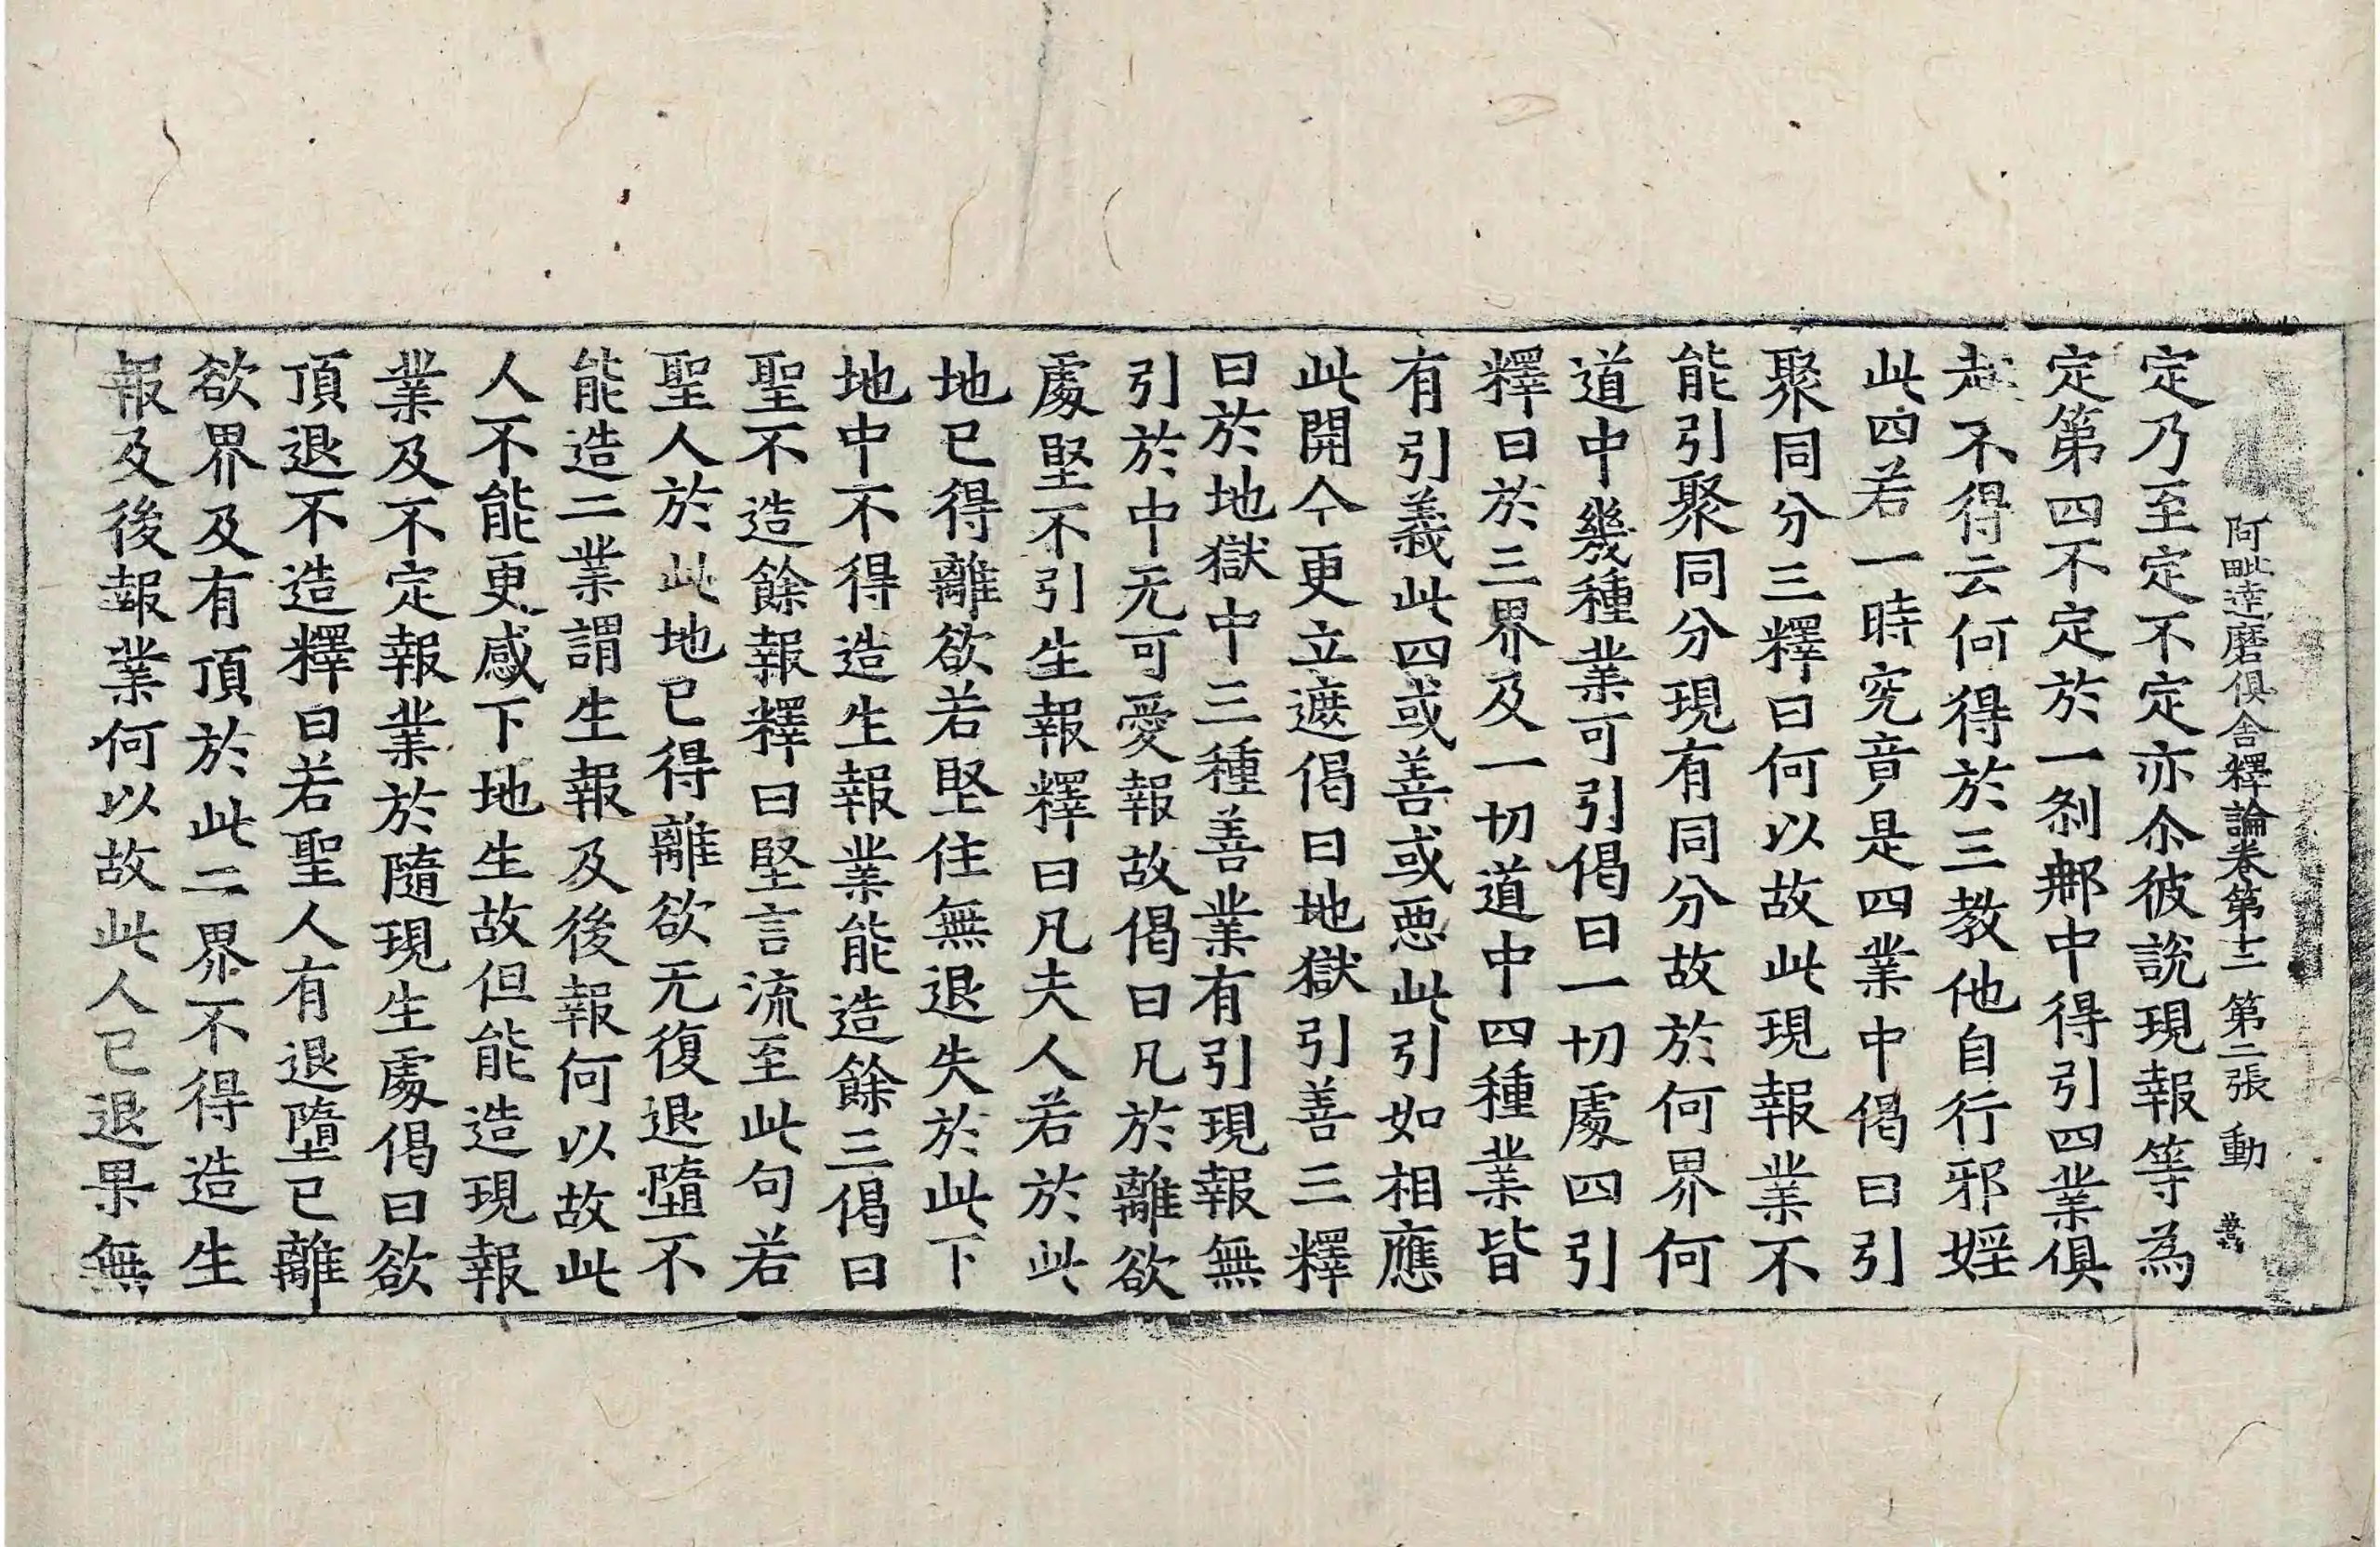 阿毗達磨俱舍釋論卷第十二 第二張 動
定乃至定不定亦尒彼說現報等為
定第四不定於一剎郍中得引四業俱
起不得云何得於三教他自行邪婬
此四若一時究竟是四業中偈曰引
聚同分三釋曰何以故此現報業不
能引聚同分現有同分故於何界何
道中幾種業可引偈曰一切處四引
釋曰於三界及一切道中四種業皆
有引義此四或善或惡此引如相應
此開今更立遮偈曰地獄引善三釋
曰於地獄中三種善業有引現報無
引於中无可愛報故偈曰凡於離欲
處堅不引生報釋曰凡夫人若於此
地已得離欲若堅住無退失於此下
地中不得造生報業能造餘三偈曰
聖不造餘報釋曰堅言流至此句若
聖人於此地已得離欲无復退墮不
能造二業謂生報及後報何以故此
人不能更感下地生故但能造現報
業及不定報業於隨現生處偈曰欲
頂退不造釋曰若聖人有退墮已離
欲界及有頂於此二界不得造生
報及後報業何以故此人已退果無